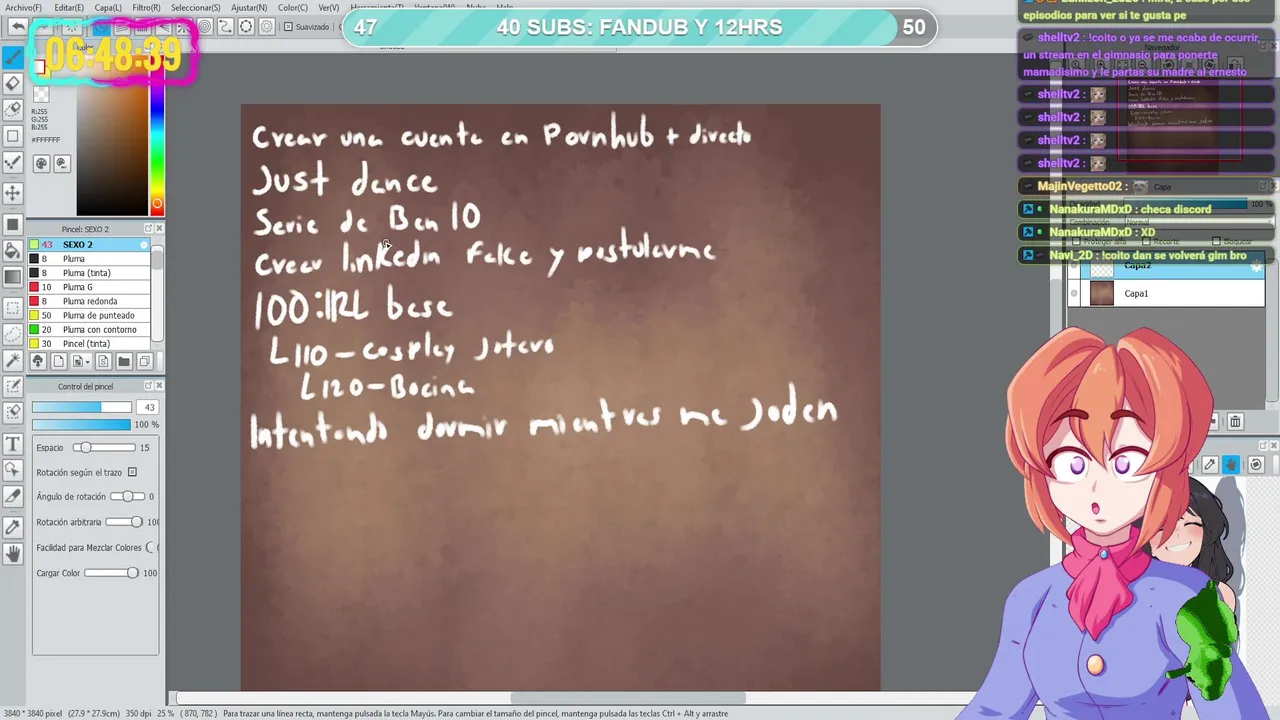 Archivo(F) Editar(E) Capa(L) Filtro(R) Seleccionar(S) Ajustar(N) Color(C) Ver(V)
47 40 SUBS: FANDUB Y 12HRS 50
06:48:39
Suavizado
episodios para ver si te gusta pe
shelltv2 : !coito o ya se me acaba de ocurrir,
un stream en el gimnasio para ponerte
mamadisimo y le partas su madre al ernesto
shelltv2 :
shelltv2 :
shelltv2 :
shelltv2 :
MajinVegetto02 :
NanakuraMDxD : checa discord
NanakuraMDxD : XD
Navi_2D : !coito dan se volverá gim bro
Capa
100 %
Capa2
Capa1
R:255
G:255
B:255
#FFFFFF
Pincel: SEXO 2
43 SEXO 2
8 Pluma
8 Pluma (tinta)
10 Pluma G
8 Pluma redonda
50 Pluma de punteado
20 Pluma con contorno
30 Pincel (tinta)
Control del pincel
43
100 %
Espacio 15
Rotación según el trazo
Ángulo de rotación 0
Rotación arbitraria 100
Facilidad para Mezclar Colores
Cargar Color 100
Crear una cuenta en Pornhub + directo
Just dance
Serie de Ben 10
Crear linkedin fake y postularme
100:IRL base
L110-cosplay Jotaro
L120-Bocina
Intentando dormir mientras me joden
3840 * 3840 pixel (27.9 * 27.9cm) 350 dpi 25 % ( 870, 782 ) Para trazar una línea recta, mantenga pulsada la tecla Mayús. Para cambiar el tamaño del pincel, mantenga pulsadas las teclas Ctrl + Alt y arrastre